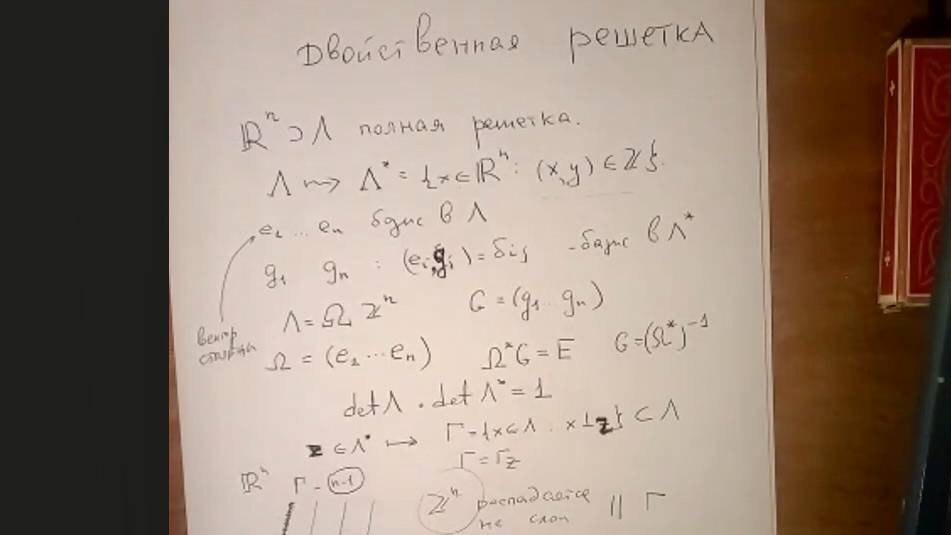 Двойственная решетка
ℝⁿ ⊃ Λ полная решетка.
Λ ⇝ Λ* = {x ∈ ℝⁿ : (x,y) ∈ ℤ}.
e₁ ... eₙ базис в Λ
g₁ gₙ : (eᵢ, gⱼ) = δᵢⱼ - базис в Λ*
Λ = Ω ℤⁿ G = (g₁ ... gₙ)
вектор
столбцы
Ω = (e₁ ... eₙ) Ω*G = E G = (Ω*)⁻¹
det Λ · det Λ* = 1
z ∈ Λ* ↦ Γ = {x ∈ Λ : x ⊥ z} ⊂ Λ
Γ = Γz
ℝⁿ Γ - n-1
ℤⁿ распадается
на слои || Γ